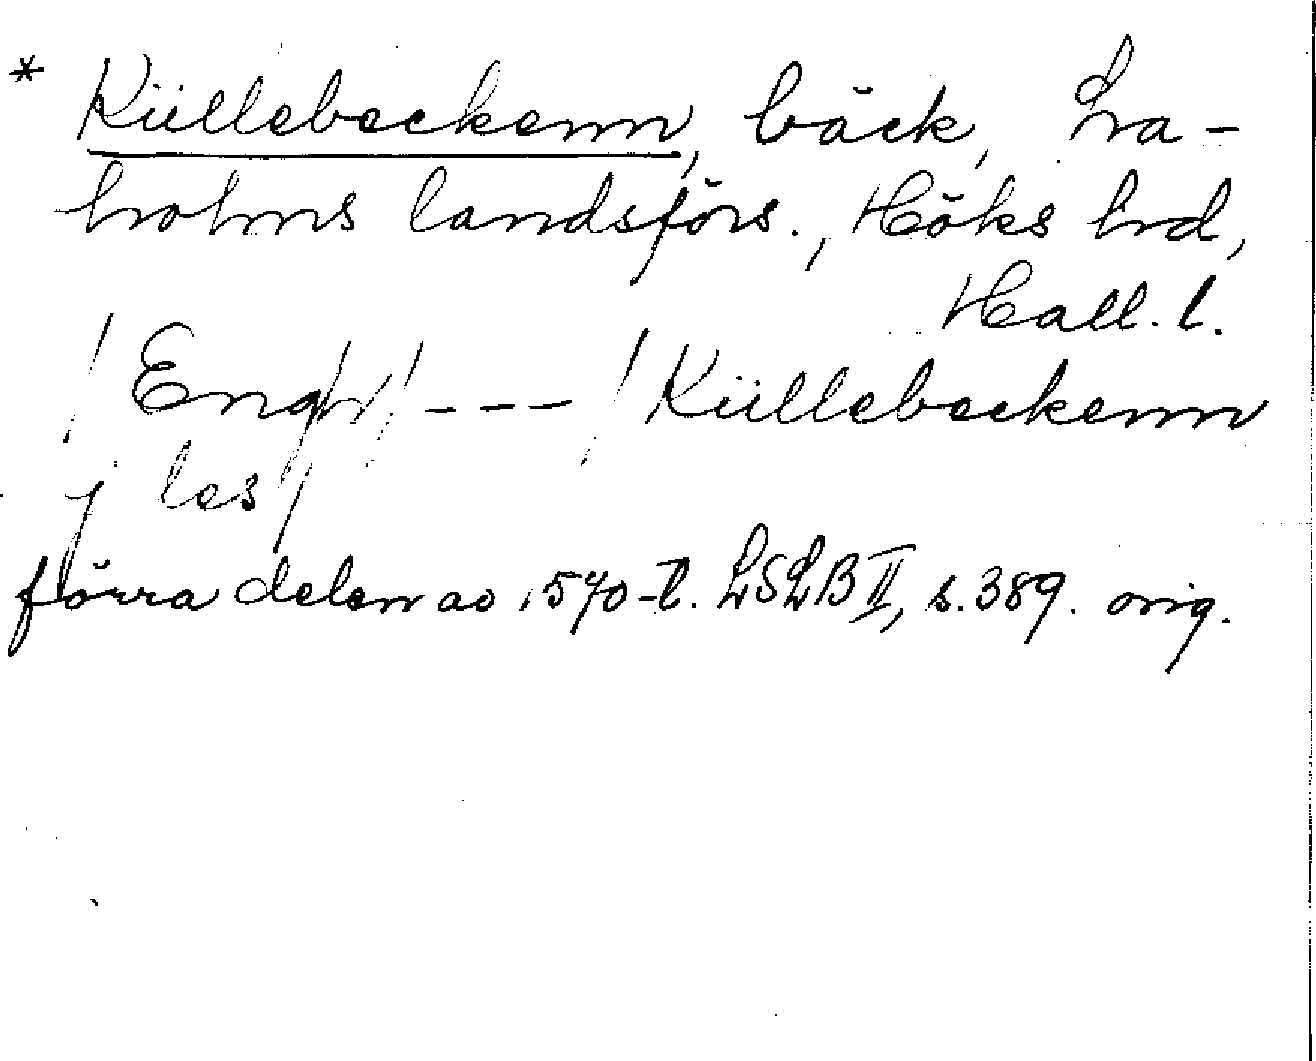 * Küllebeckenn, bäck, La-
holms landsförs., Höks hd,
Hall. l.
/ Engh / - - - / Küllebeckenn
j les /
förra delen av 1570-t. LSLB II, s. 389. orig.